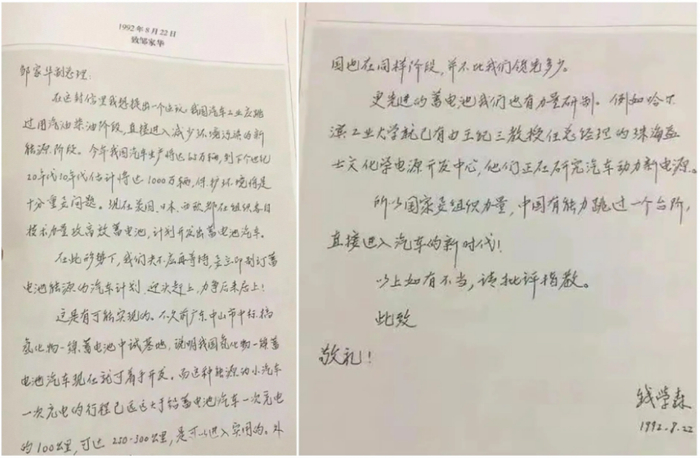 1992年8月22日
致邹家华
邹家华副总理:
在这封信里我想提出一个建议:我国汽车工业应跳
过用汽油柴油阶段,直接进入减少环境污染的新
能源阶段。今年我国汽车生产将达万辆,到下个世纪
年代年代估计将达1000万辆,保护环境将是
十分重要问题。现在美国、日本、西欧都在组织各自
技术力量攻高效蓄电池,计划开发出蓄电池汽车。
在此形势下,我们决不应再等待,要立即制订蓄
电池能源的汽车计划,迎头赶上,力争后来居上!
这是有可能实现的。不久前广东中山市中标搞
氢化物—镍蓄电池中试基地,说明我国氢化物—镍蓄
电池汽车现在就可着手开发。而这种能源的小汽车
一次充电的行程已远远大于铅蓄电池汽车一次充电
的100公里,可达250-300公里,是可以进入实用的。外
国也在同样阶段,并不比我们领先多少。
更先进的蓄电池我们也有力量研制。例如哈尔
滨工业大学就已有由王纪三教授任总经理的珠海益
士文化学电源开发中心,他们正在研究汽车动力新电源。
所以国家要组织力量,中国有能力跳过一个台阶,
直接进入汽车的新时代!
以上如有不当,请批评指教。
此致
敬礼!
钱学森
1992.8.22